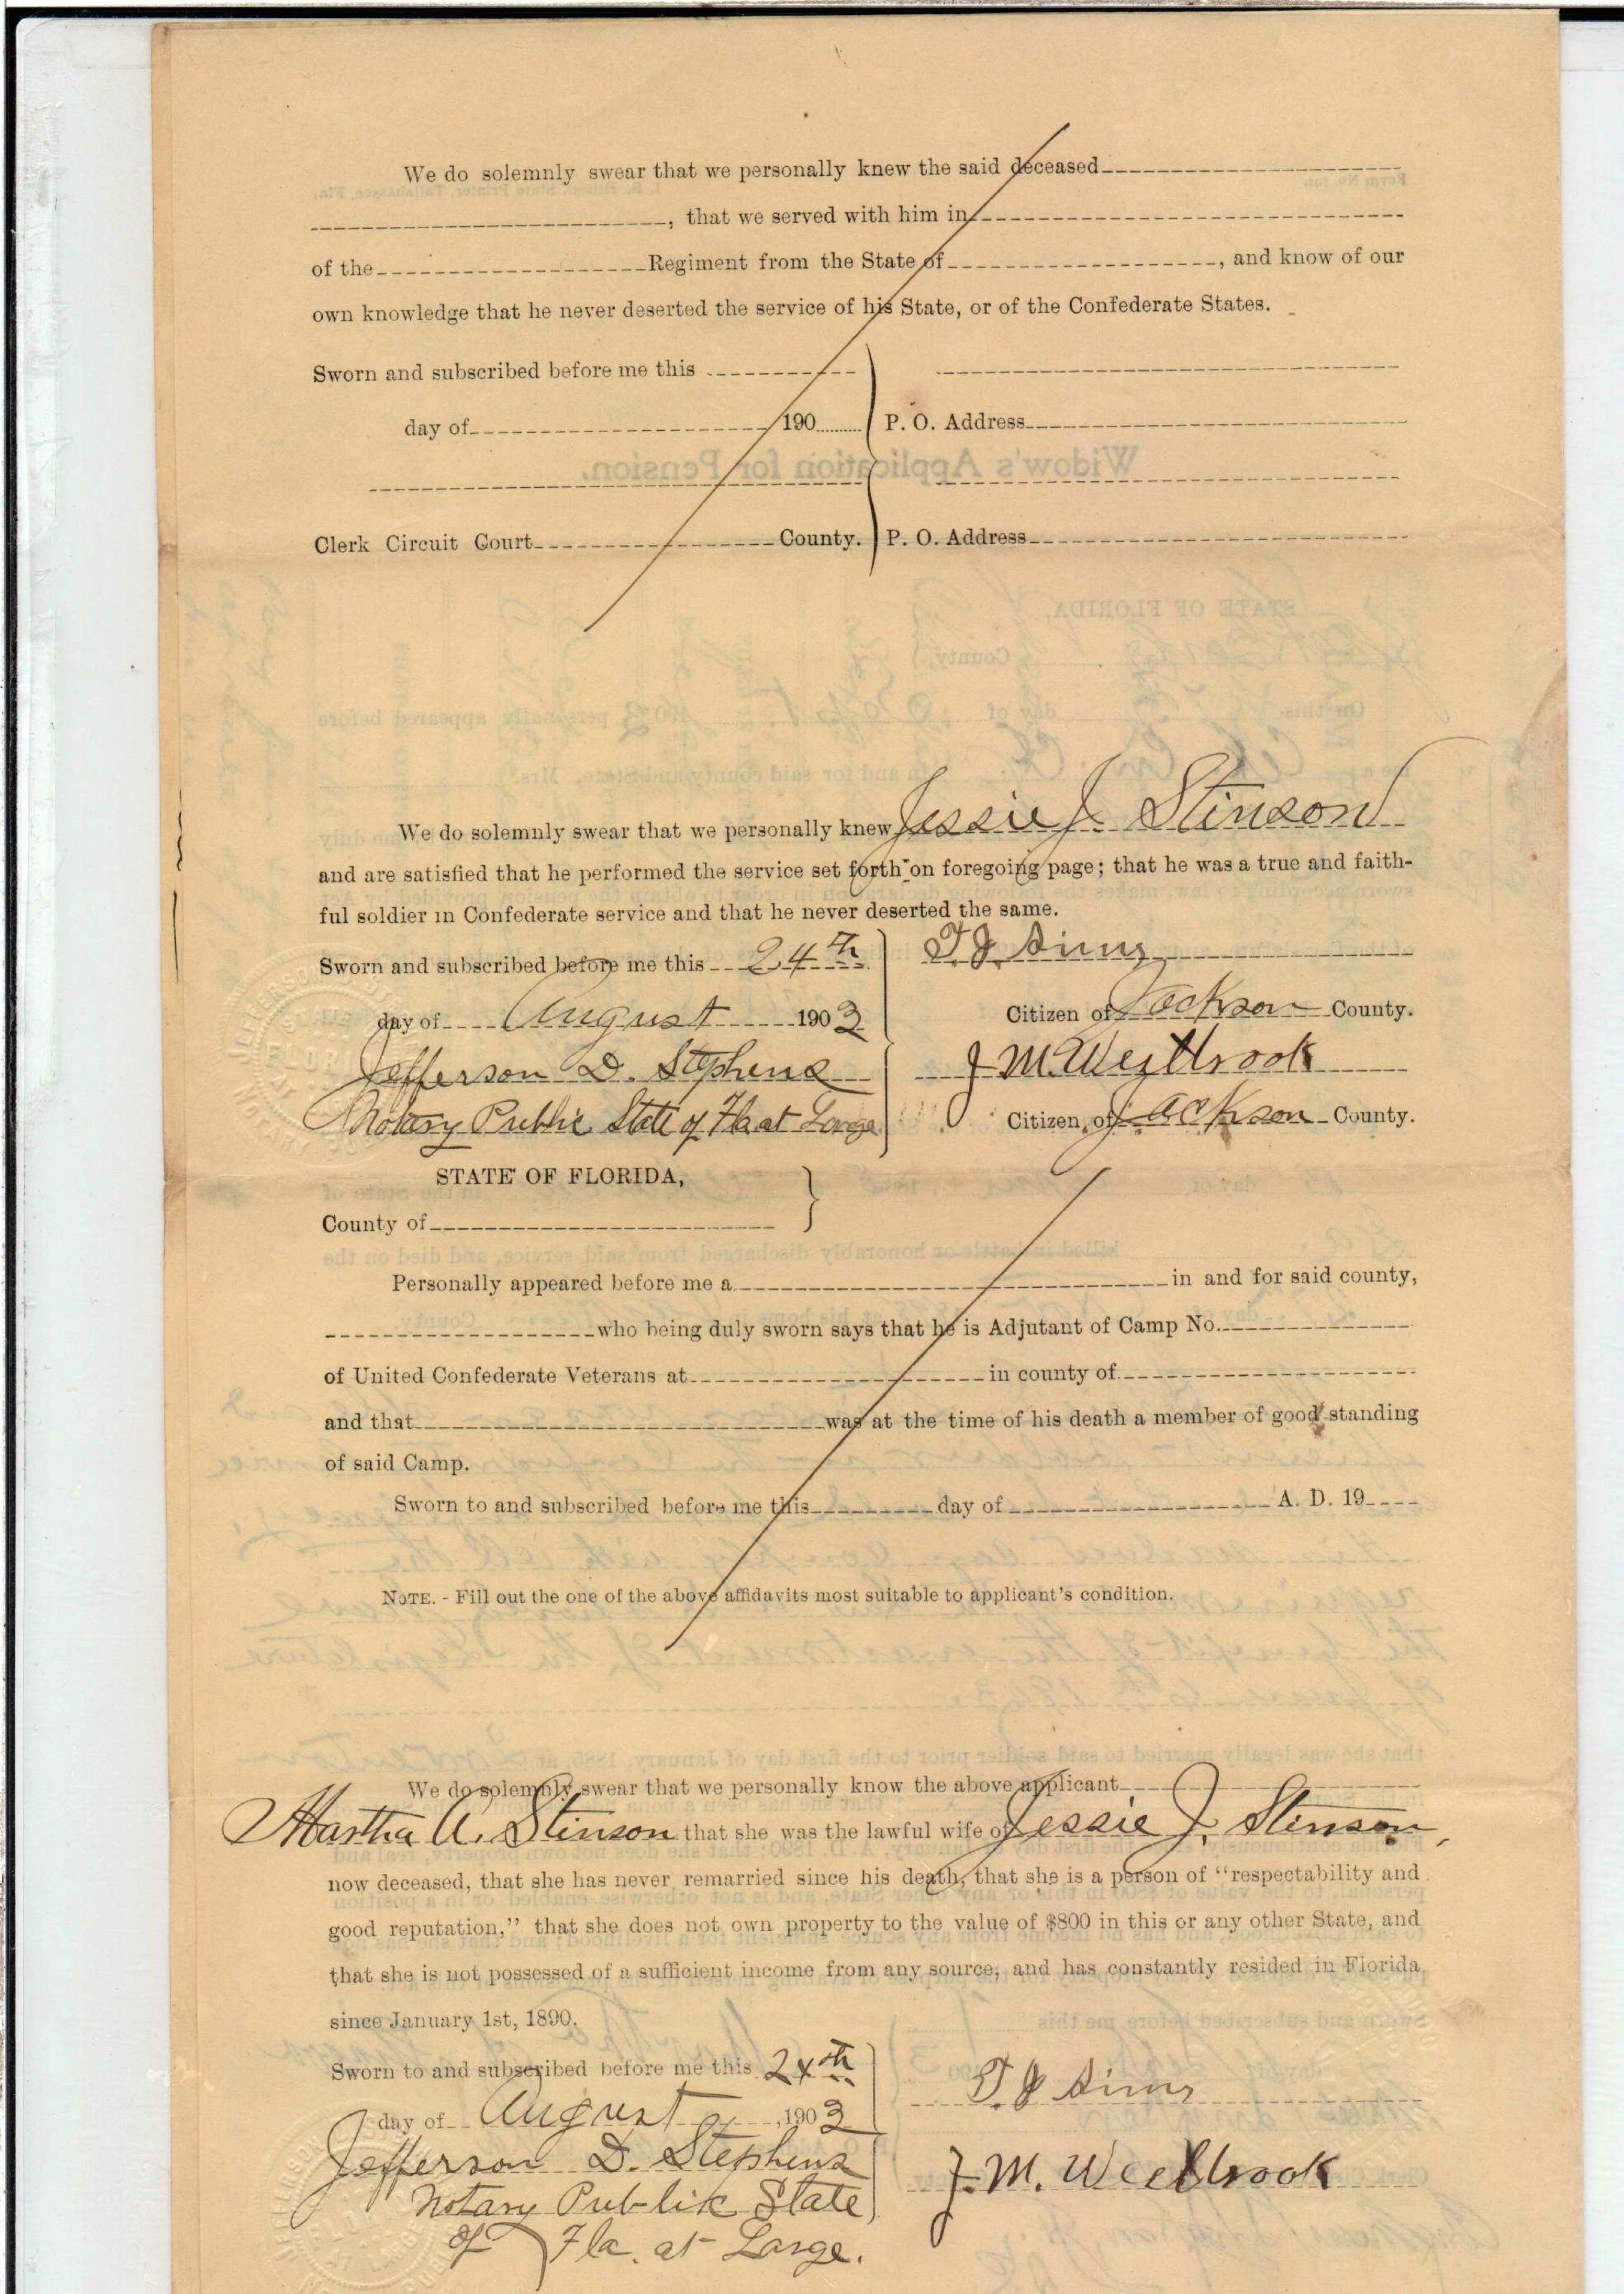 We do solemnly swear that we personally knew the said deceased
, that we served with him in
of the Regiment from the State of , and know of our
own knowledge that he never deserted the service of his State, or of the Confederate States.
Sworn and subscribed before me this
day of 190
P. O. Address
Widow's Application for Pension.
Clerk Circuit Court County. P. O. Address
STATE OF FLORIDA,
County,
On this day of Sept. 1903 personally appeared before
in and for said county and State, Mrs.
We do solemnly swear that we personally knew Jessie J. Stinson
and are satisfied that he performed the service set forth on foregoing page; that he was a true and faith-
ful soldier in Confederate service and that he never deserted the same.
Sworn and subscribed before me this 24th T. J. Sims
day of August 1903 Citizen of Jackson County.
Jefferson D. Stephens J M. Westbrook
Notary Public State of Fla at Large Citizen of Jackson County.
STATE OF FLORIDA,
County of
killed in battle or honorably discharged from said service, and died on the
Personally appeared before me a in and for said county,
who being duly sworn says that he is Adjutant of Camp No.
of United Confederate Veterans at in county of
and that was at the time of his death a member of good standing
of said Camp.
Sworn to and subscribed before me this day of A. D. 19
NOTE. - Fill out the one of the above affidavits most suitable to applicant's condition.
that she was legally married to said soldier prior to the first day of January, 1885, at
We do solemnly swear that we personally know the above applicant
Martha A. Stinson that she was the lawful wife of Jessie J. Stinson,
now deceased, that she has never remarried since his death, that she is a person of "respectability and
good reputation," that she does not own property to the value of $800 in this or any other State, and
that she is not possessed of a sufficient income from any source, and has constantly resided in Florida
since January 1st, 1890.
Sworn to and subscribed before me this 24th
day of August, 1903 T. J. Sims
Jefferson D. Stephens J. M. Westbrook
Notary Public State
of Fla. at Large.